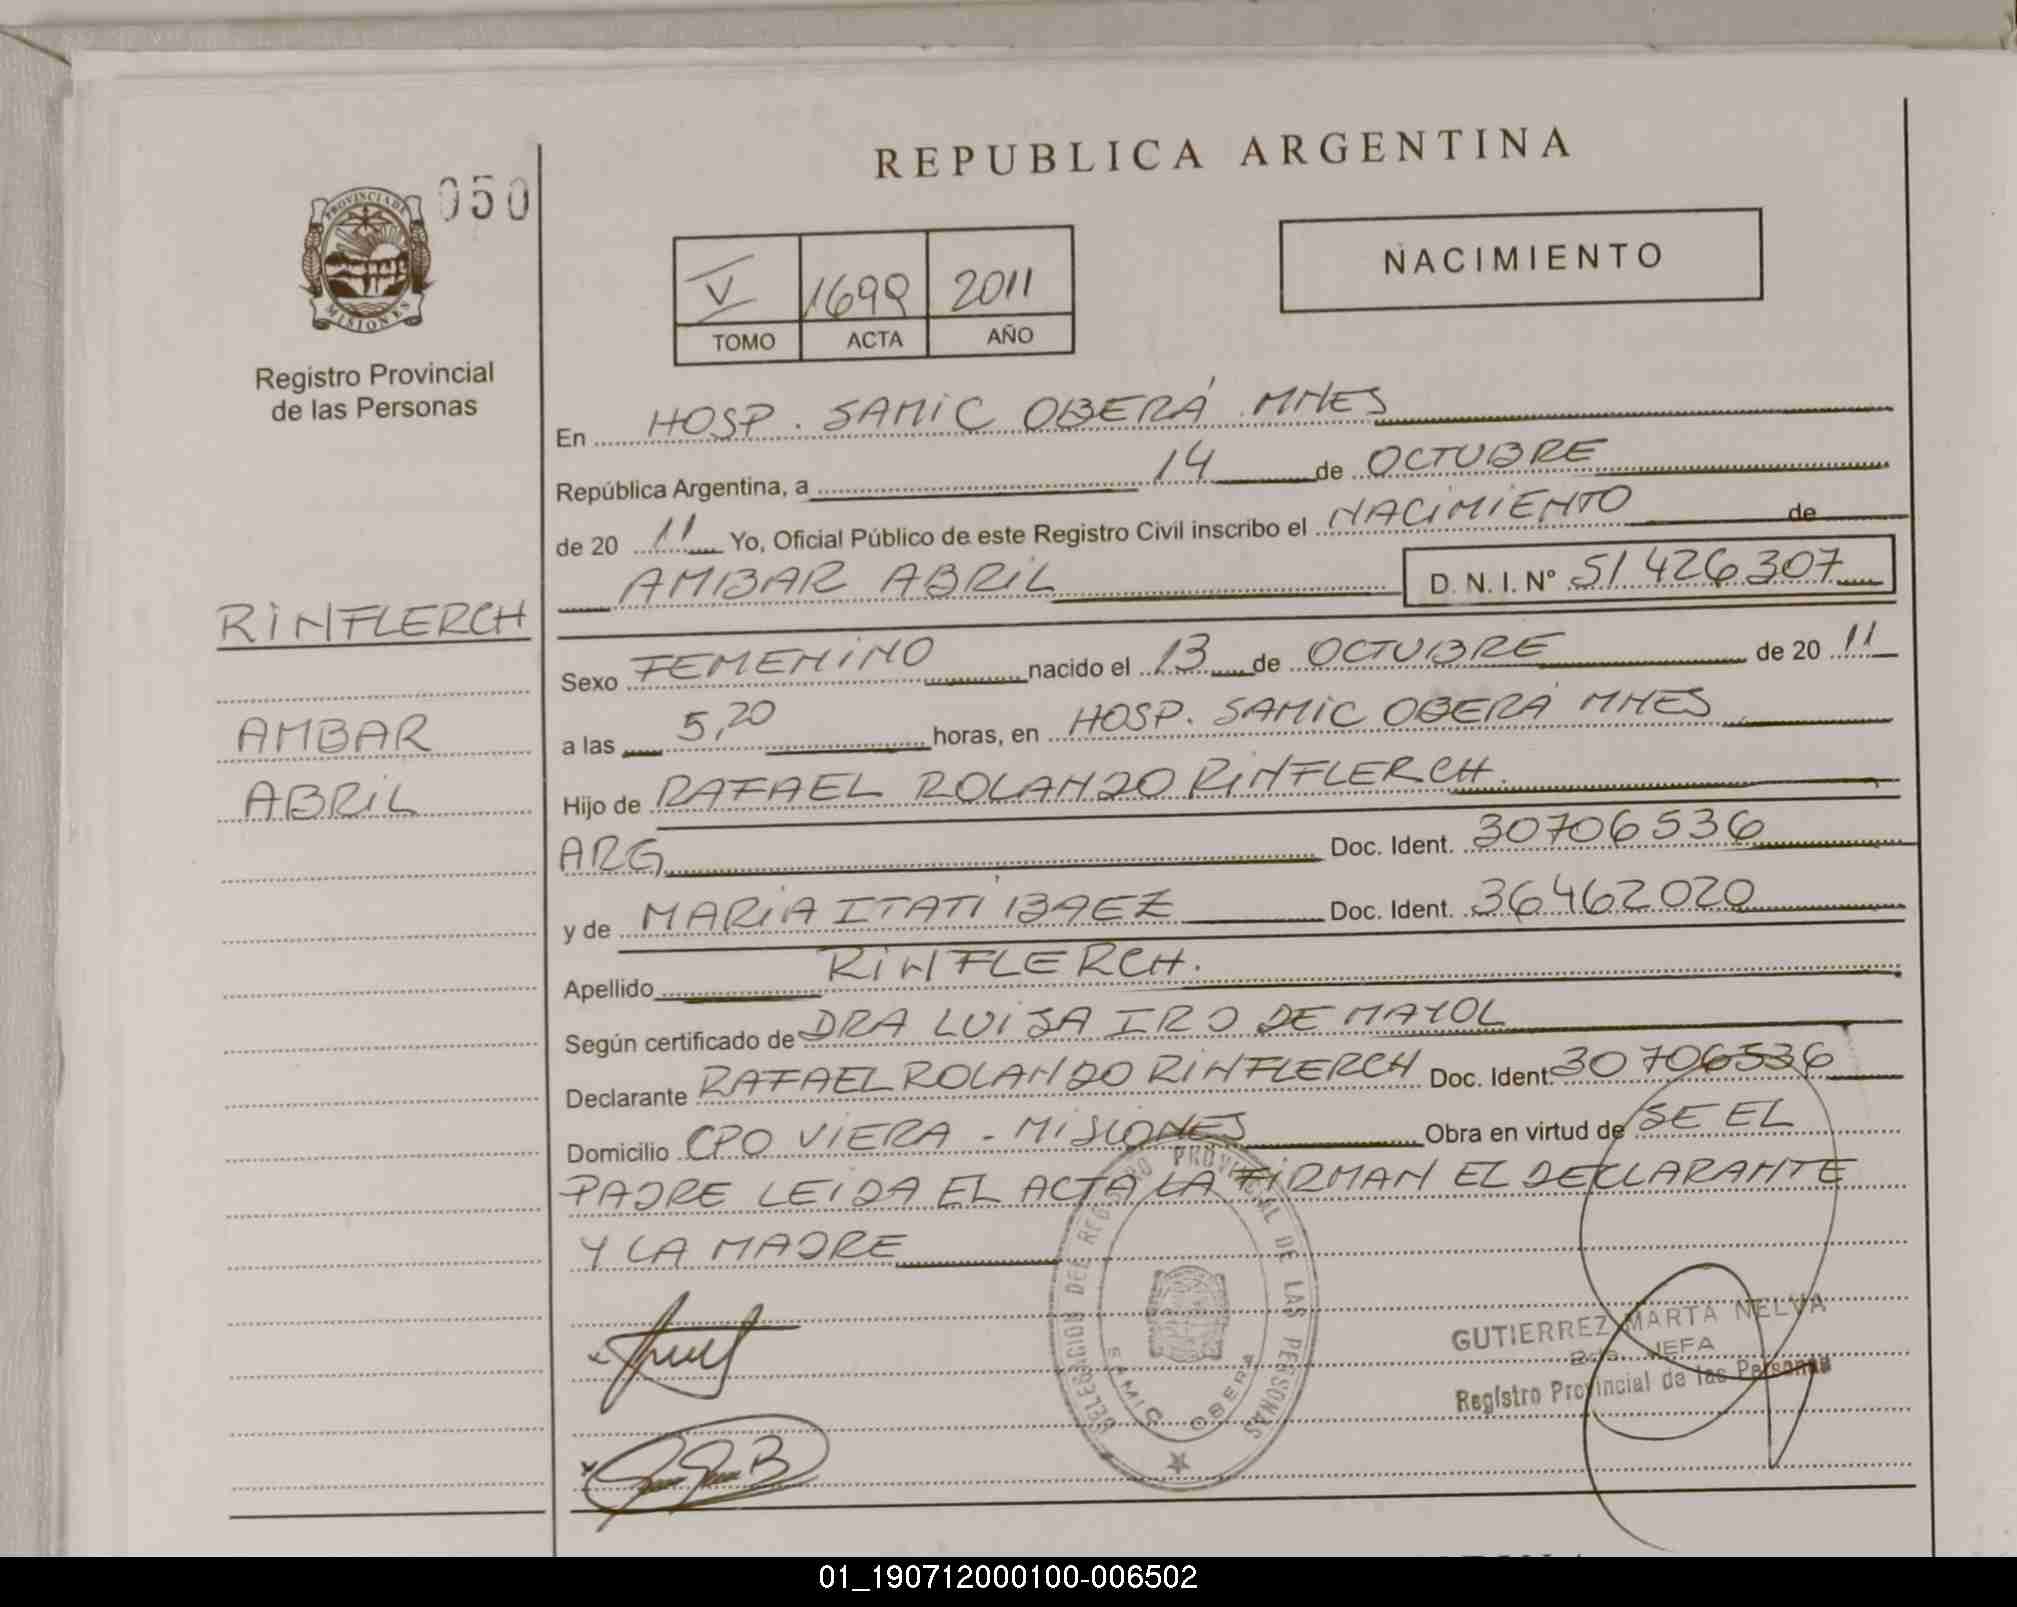 REPUBLICA ARGENTINA
050
PROVINCIA DE
MISIONES
Registro Provincial
de las Personas
NACIMIENTO
V 1699 2011
TOMO ACTA AÑO
En HOSP. SAMIC OBERÁ MNES
República Argentina, a 14 de OCTUBRE
de 20 11 Yo, Oficial Público de este Registro Civil inscribo el NACIMIENTO de
AMBAR ABRIL D.N.I. Nº 51 426 307
RINFLERCH
AMBAR
ABRIL
Sexo FEMENINO nacido el 13 de OCTUBRE de 20 11
a las 5,20 horas, en HOSP. SAMIC OBERÁ MNES
Hijo de RAFAEL ROLANDO RINFLERCH.
ARG Doc. Ident. 30706536
y de MARIA ITATI BAEZ Doc. Ident. 36462020
Apellido RINFLERCH.
Según certificado de DRA LUISA IRO DE MAYOL
Declarante RAFAEL ROLANDO RINFLERCH Doc. Ident. 30706536
Domicilio CPO VIERA - MISIONES Obra en virtud de SE EL
PADRE LEIDA EL ACTA LA FIRMAN EL DECLARANTE
Y LA MADRE
DELEGACION DEL REGISTRO PROVINCIAL DE LAS PERSONAS
SAMIC OBERA
GUTIERREZ MARTA NELVA
JEFA
Registro Provincial de las Personas
01_190712000100-006502